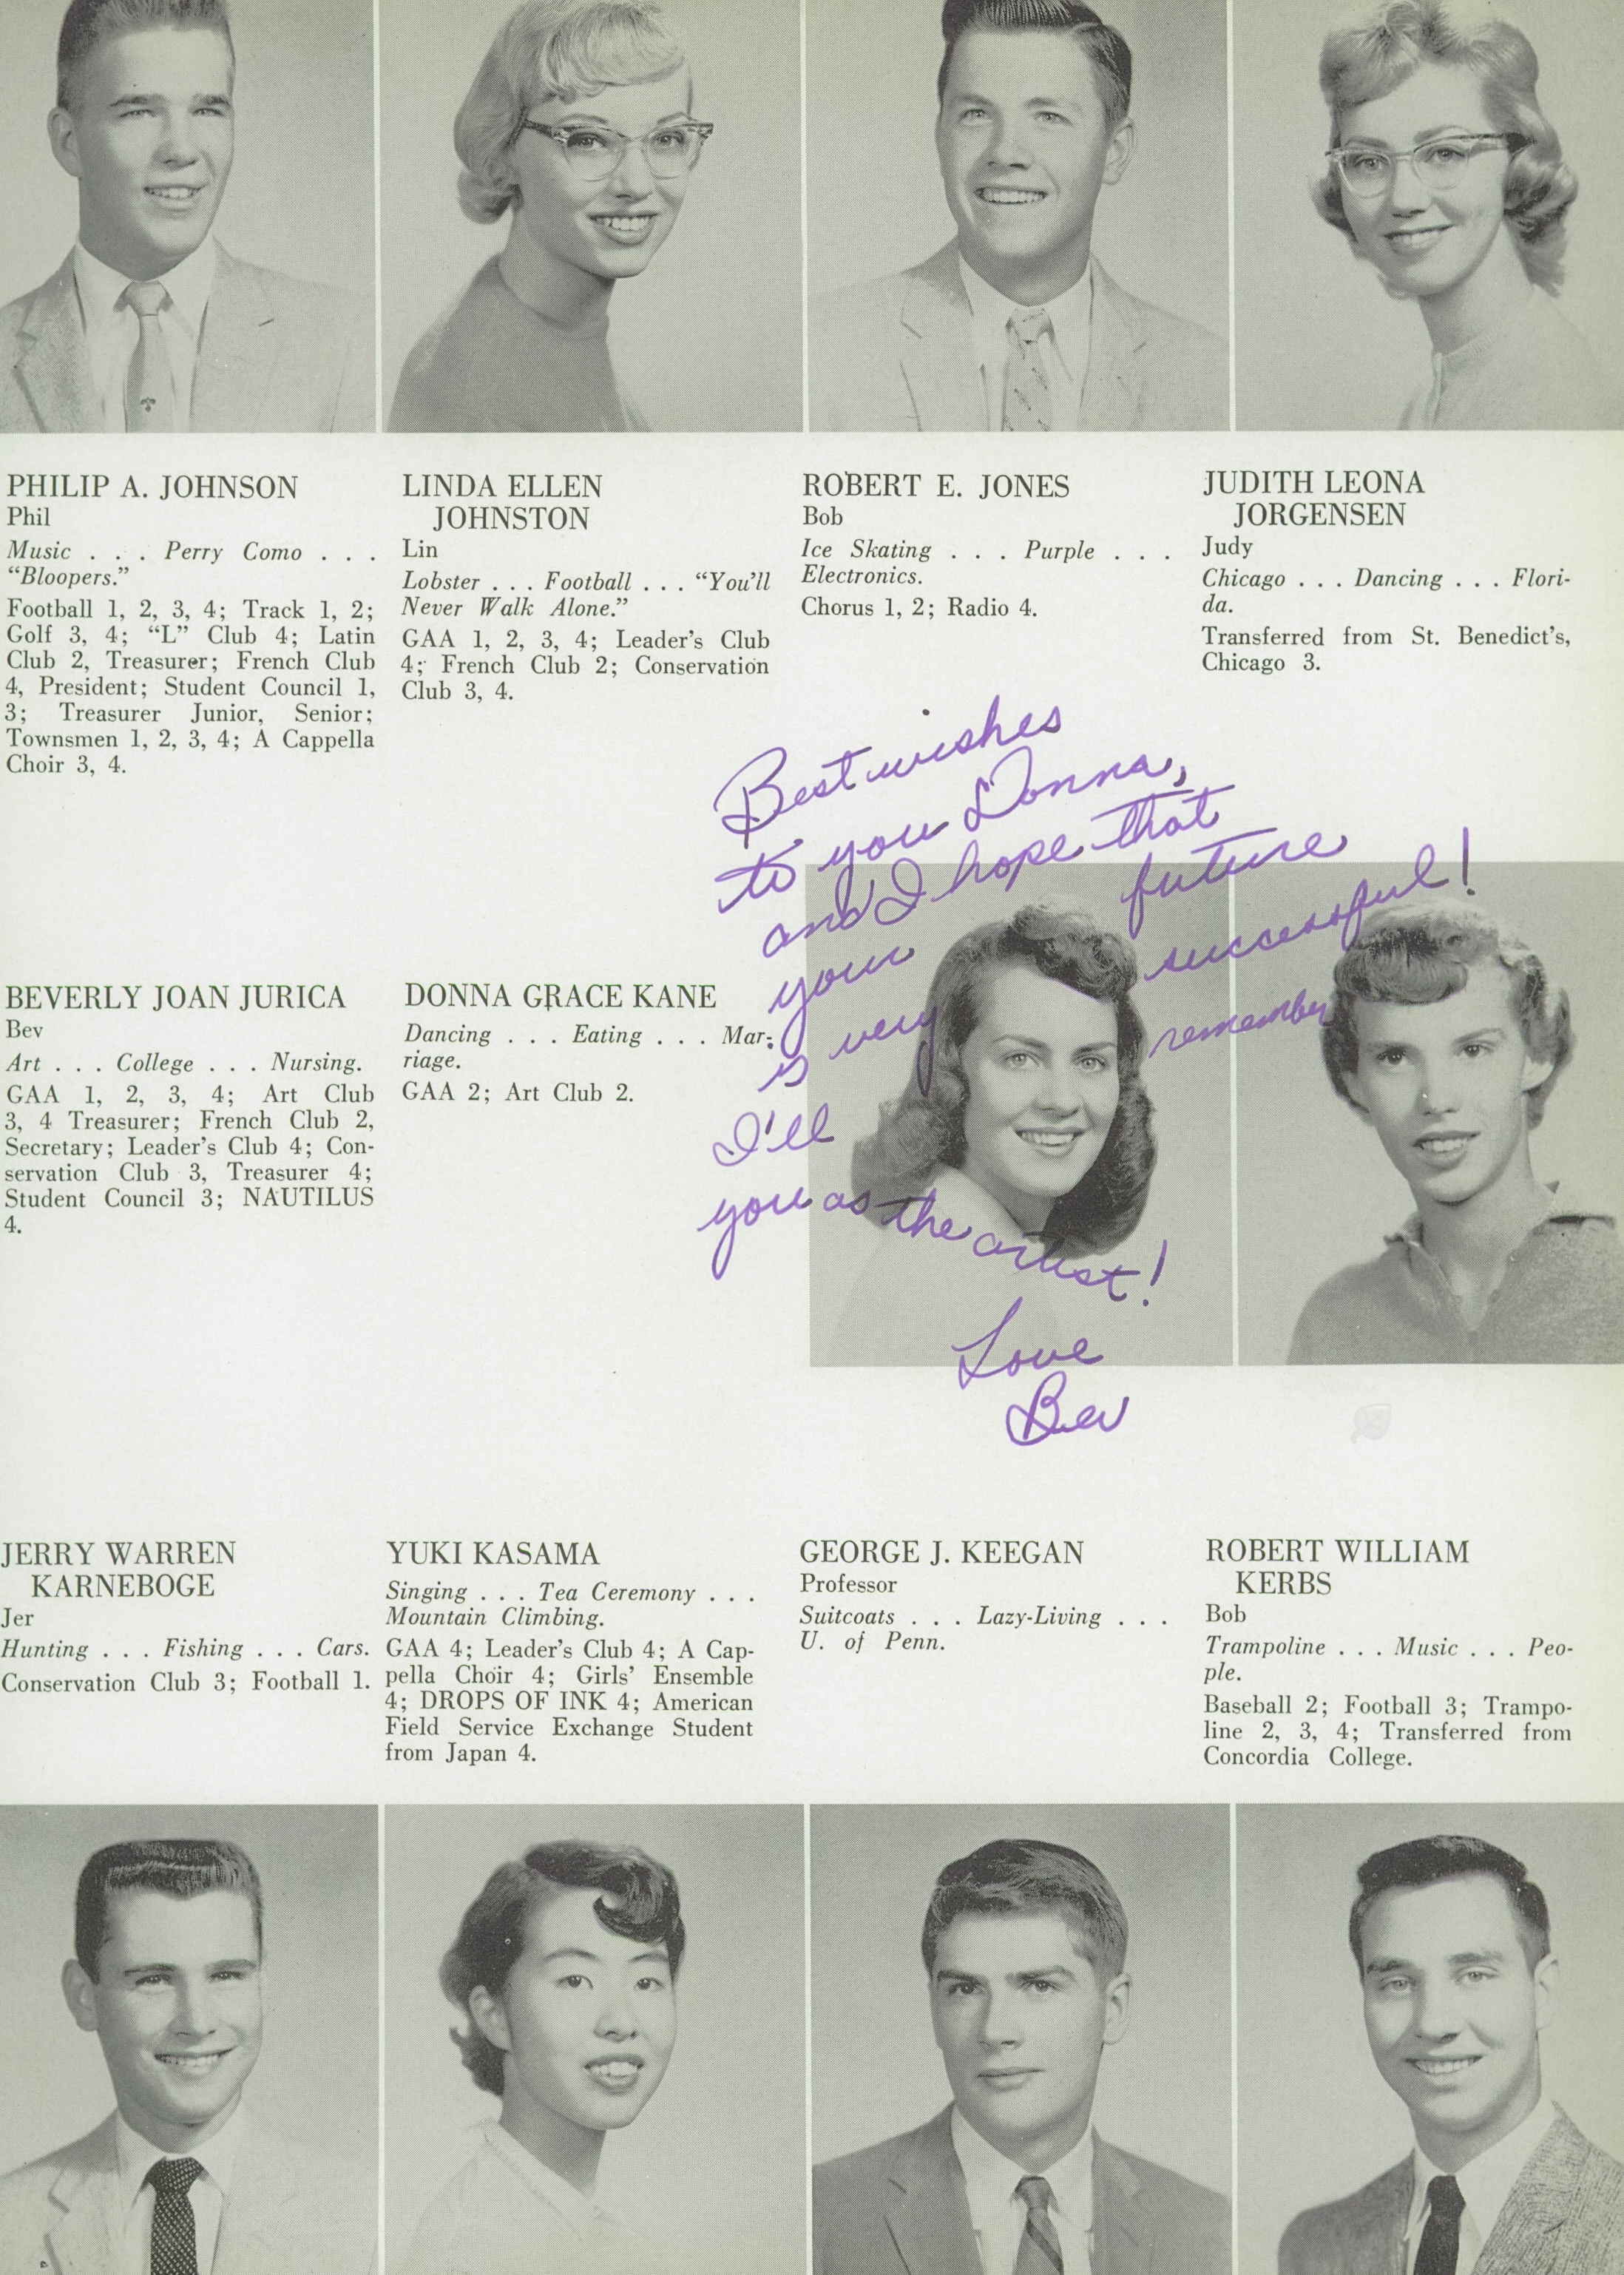 PHILIP A. JOHNSON
Phil
Music . . . Perry Como . . .
“Bloopers.”
Football 1, 2, 3, 4; Track 1, 2;
Golf 3, 4; “L” Club 4; Latin
Club 2, Treasurer; French Club
4, President; Student Council 1,
3; Treasurer Junior, Senior;
Townsmen 1, 2, 3, 4; A Cappella
Choir 3, 4.
LINDA ELLEN
JOHNSTON
Lin
Lobster . . . Football . . . “You’ll
Never Walk Alone.”
GAA 1, 2, 3, 4; Leader’s Club
4; French Club 2; Conservation
Club 3, 4.
ROBERT E. JONES
Bob
Ice Skating . . . Purple . . .
Electronics.
Chorus 1, 2; Radio 4.
JUDITH LEONA
JORGENSEN
Judy
Chicago . . . Dancing . . . Flori-
da.
Transferred from St. Benedict’s,
Chicago 3.
BEVERLY JOAN JURICA
Bev
Art . . . College . . . Nursing.
GAA 1, 2, 3, 4; Art Club
3, 4 Treasurer; French Club 2,
Secretary; Leader’s Club 4; Con-
servation Club 3, Treasurer 4;
Student Council 3; NAUTILUS
4.
DONNA GRACE KANE
Dancing . . . Eating . . . Mar-
riage.
GAA 2; Art Club 2.
Best wishes
to you Donna,
and I hope that
your future
is very successful!
I'll remember
you as the artist!
Love
Bev
JERRY WARREN
KARNEBOGE
Jer
Hunting . . . Fishing . . . Cars.
Conservation Club 3; Football 1.
YUKI KASAMA
Singing . . . Tea Ceremony . . .
Mountain Climbing.
GAA 4; Leader’s Club 4; A Cap-
pella Choir 4; Girls’ Ensemble
4; DROPS OF INK 4; American
Field Service Exchange Student
from Japan 4.
GEORGE J. KEEGAN
Professor
Suitcoats . . . Lazy-Living . . .
U. of Penn.
ROBERT WILLIAM
KERBS
Bob
Trampoline . . . Music . . . Peo-
ple.
Baseball 2; Football 3; Trampo-
line 2, 3, 4; Transferred from
Concordia College.